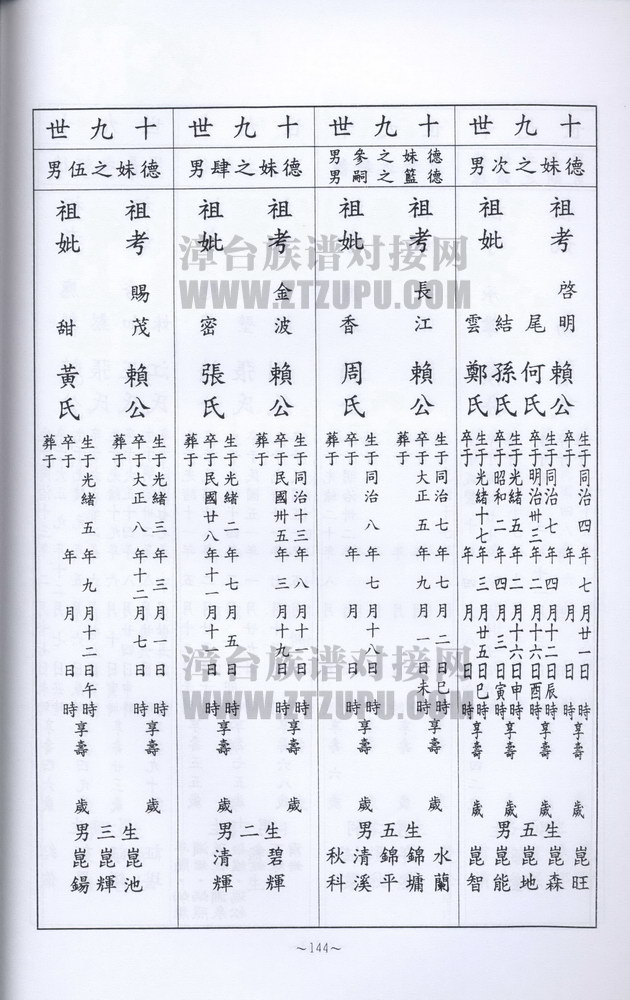 十九世
德妹之次男
祖考啓明賴公
生于同治四年七月廿一日 時
卒于 年 月 日 時享壽 歲
祖妣尾何氏
生于同治七年四月十二日辰時
卒于明治卅三年二月十六日酉時享壽 歲
結孫氏
生于光緒五年二月十六日申時
卒于昭和二年四月三日寅時享壽 歲
雲鄭氏
生于光緒十七年三月廿五日巳時
卒于 年 月 日 時享壽 歲
生五男
崑旺
崑森
崑地
崑能
崑智
十九世
德妹之參男
德籃之嗣男
祖考長江賴公
生于同治七年七月二日巳時
卒于大正五年九月一日未時享壽 歲
葬于
祖妣香周氏
生于同治八年七月十八日 時
卒于 年 月 日 時享壽 歲
葬于
生五男
水蘭
錦墉
錦平
清溪
秋科
十九世
德妹之肆男
祖考金波賴公
生于同治十三年八月十一日 時
卒于民國卅五年三月十九日 時享壽 歲
葬于
祖妣密張氏
生于光緒二年七月五日 時
卒于民國廿八年十一月十九日 時享壽 歲
葬于
生二男
碧輝
清輝
十九世
德妹之伍男
祖考賜茂賴公
生于光緒三年三月一日 時
卒于大正八年十二月七日 時享壽 歲
葬于
祖妣甜黃氏
生于光緒五年九月十二日午時
卒于 年 月 日 時享壽 歲
葬于
生三男
崑池
崑輝
崑錫
~144~
漳台族谱对接网
WWW.ZTZUPU.COM
漳台族谱对接网
WWW.ZTZUPU.COM